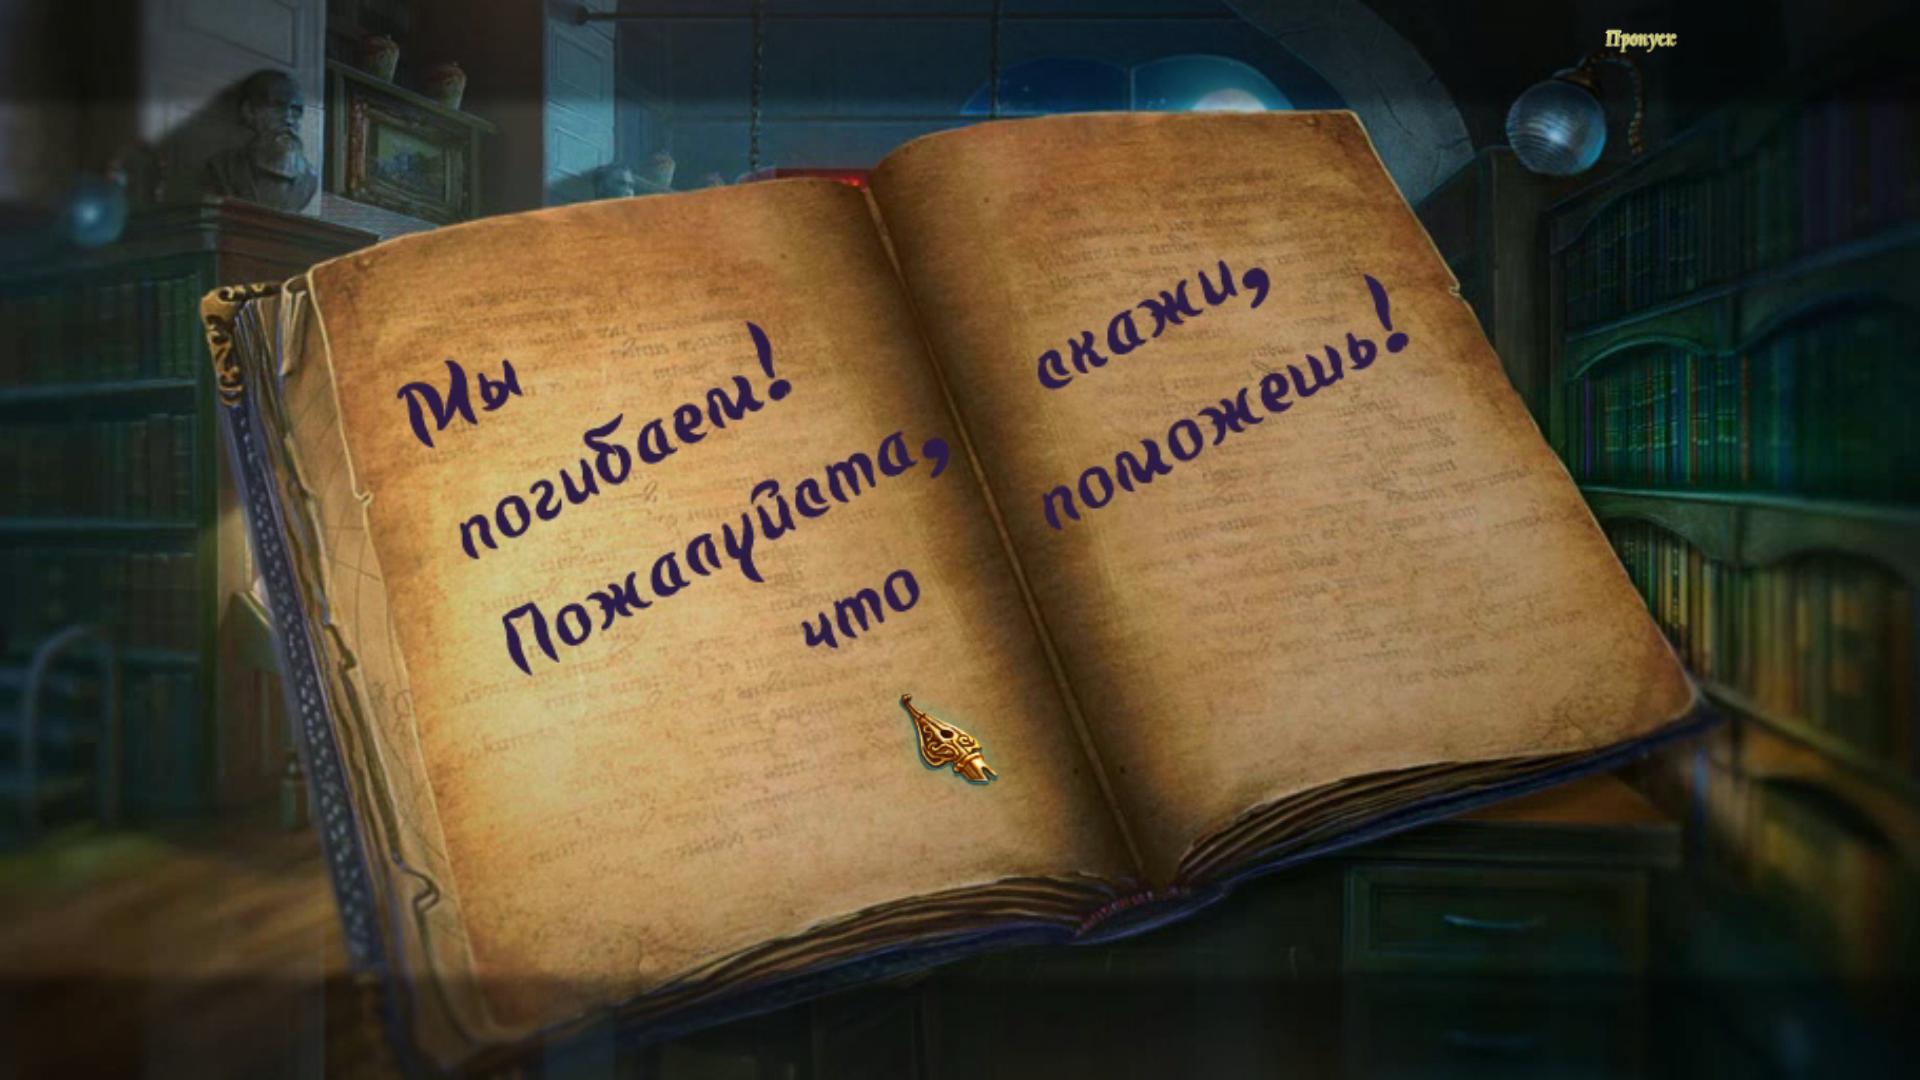 Пропуск
Мы
погибаем!
Пожалуйста,
что
скажи,
поможешь!